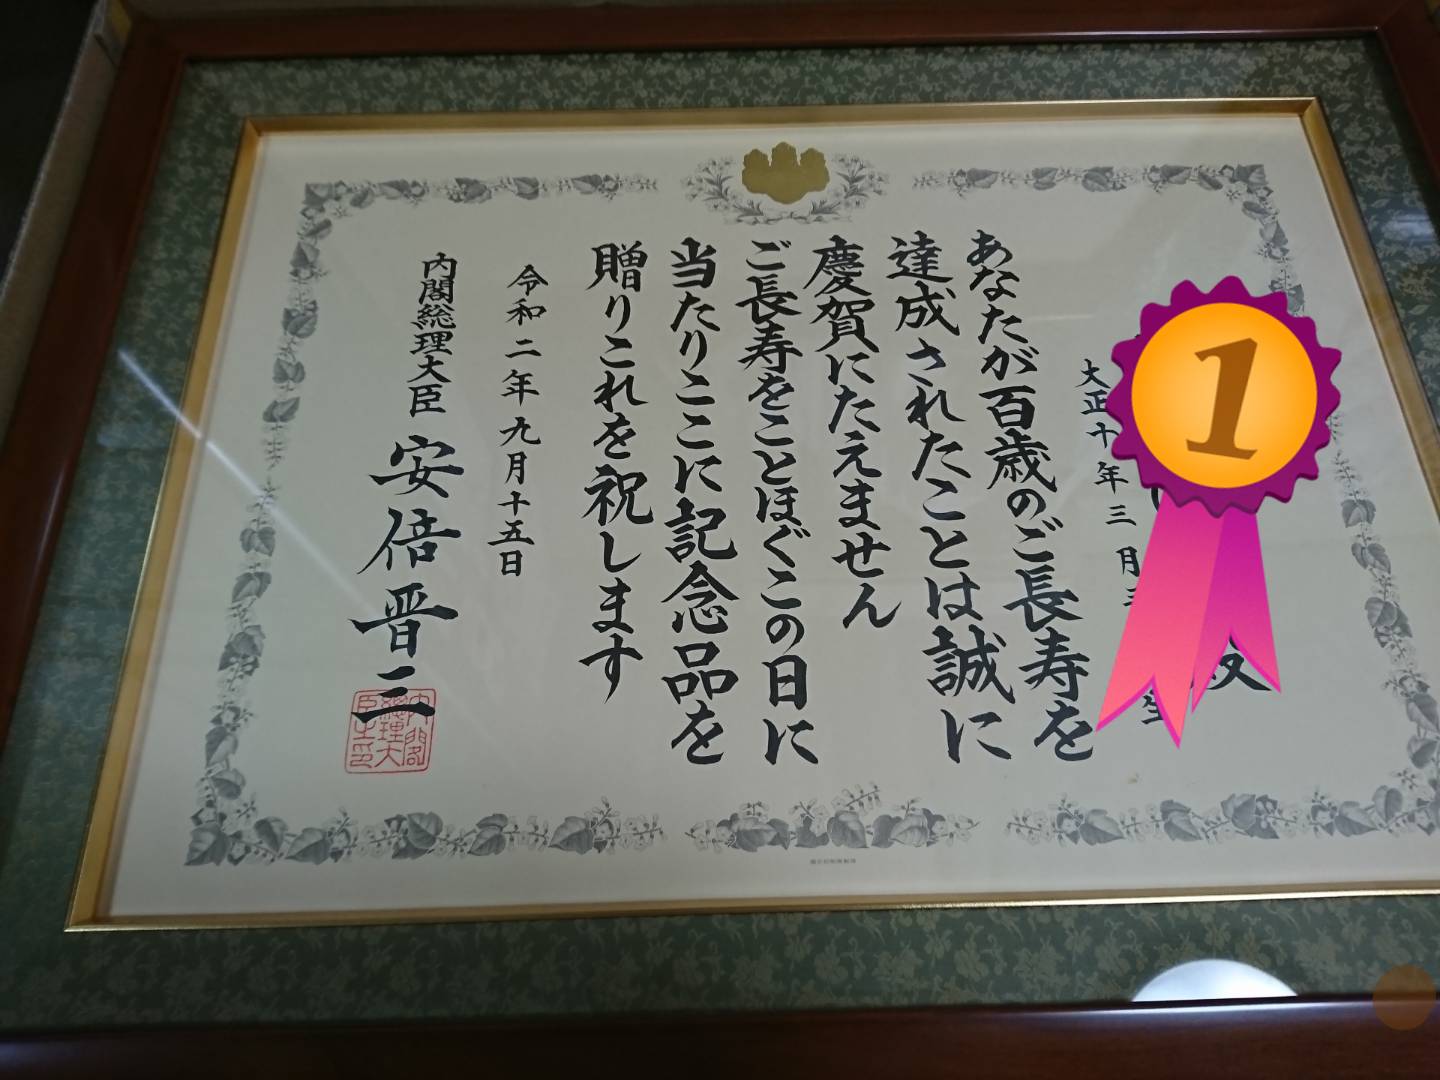 殿
大正十年三月三
生
あなたが百歳のご長寿を
達成されたことは誠に
慶賀にたえません
ご長寿をことほぐこの日に
当たりここに記念品を
贈りこれを祝します
令和二年九月十五日
内閣総理大臣 安倍晋三
内閣
総理大
臣之印
1